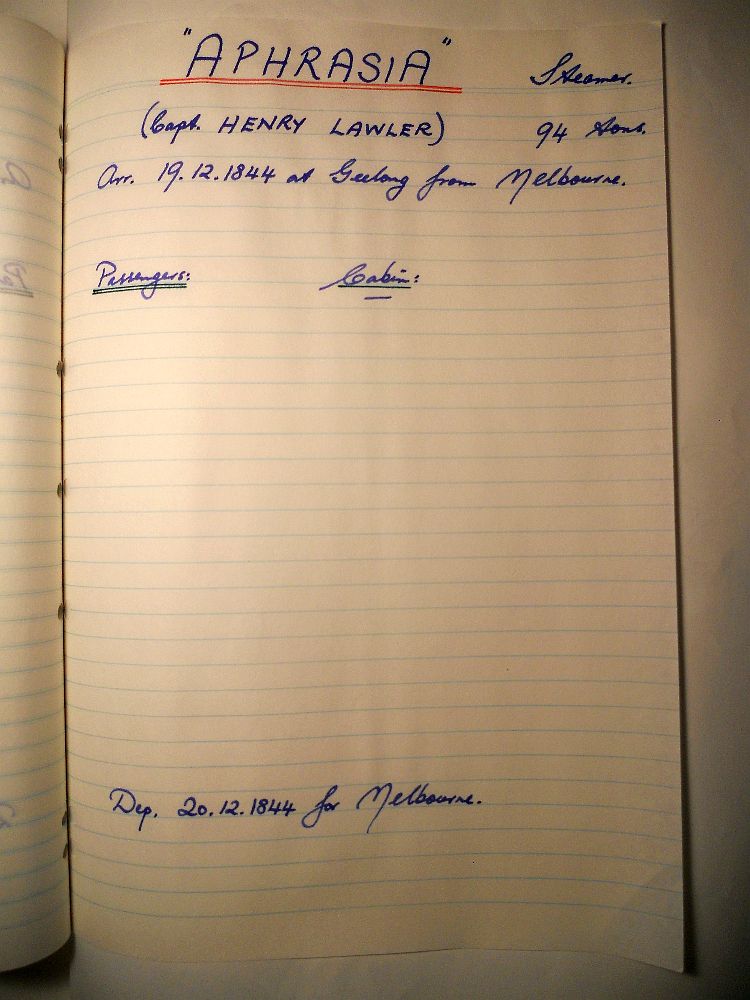 "APHRASIA" Steamer.
(Capt. HENRY LAWLER) 94 Tons.
Arr. 19.12.1844 at Geelong from Melbourne.
Passengers: Cabin:
Dep. 20.12.1844 for Melbourne.